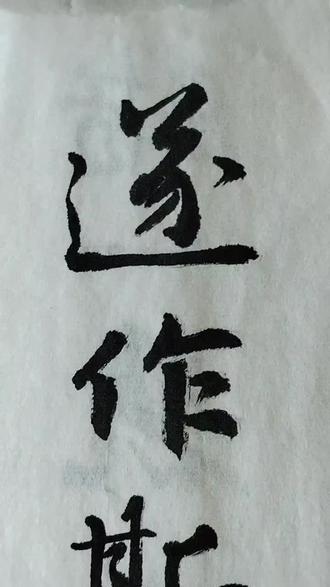 遂作斯